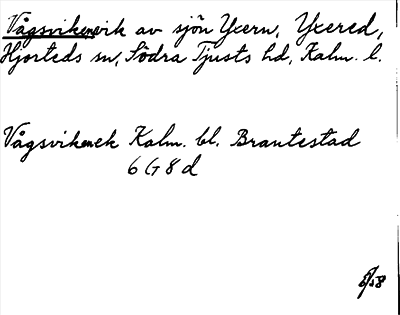 Vågsviken, vik av sjön Yxern, Yxered,
Hjorteds sn, Södra Tjusts hd, Kalm. l.
Vågsviken ek Kalm. bl. Brantestad
6 G 8 d
5/58